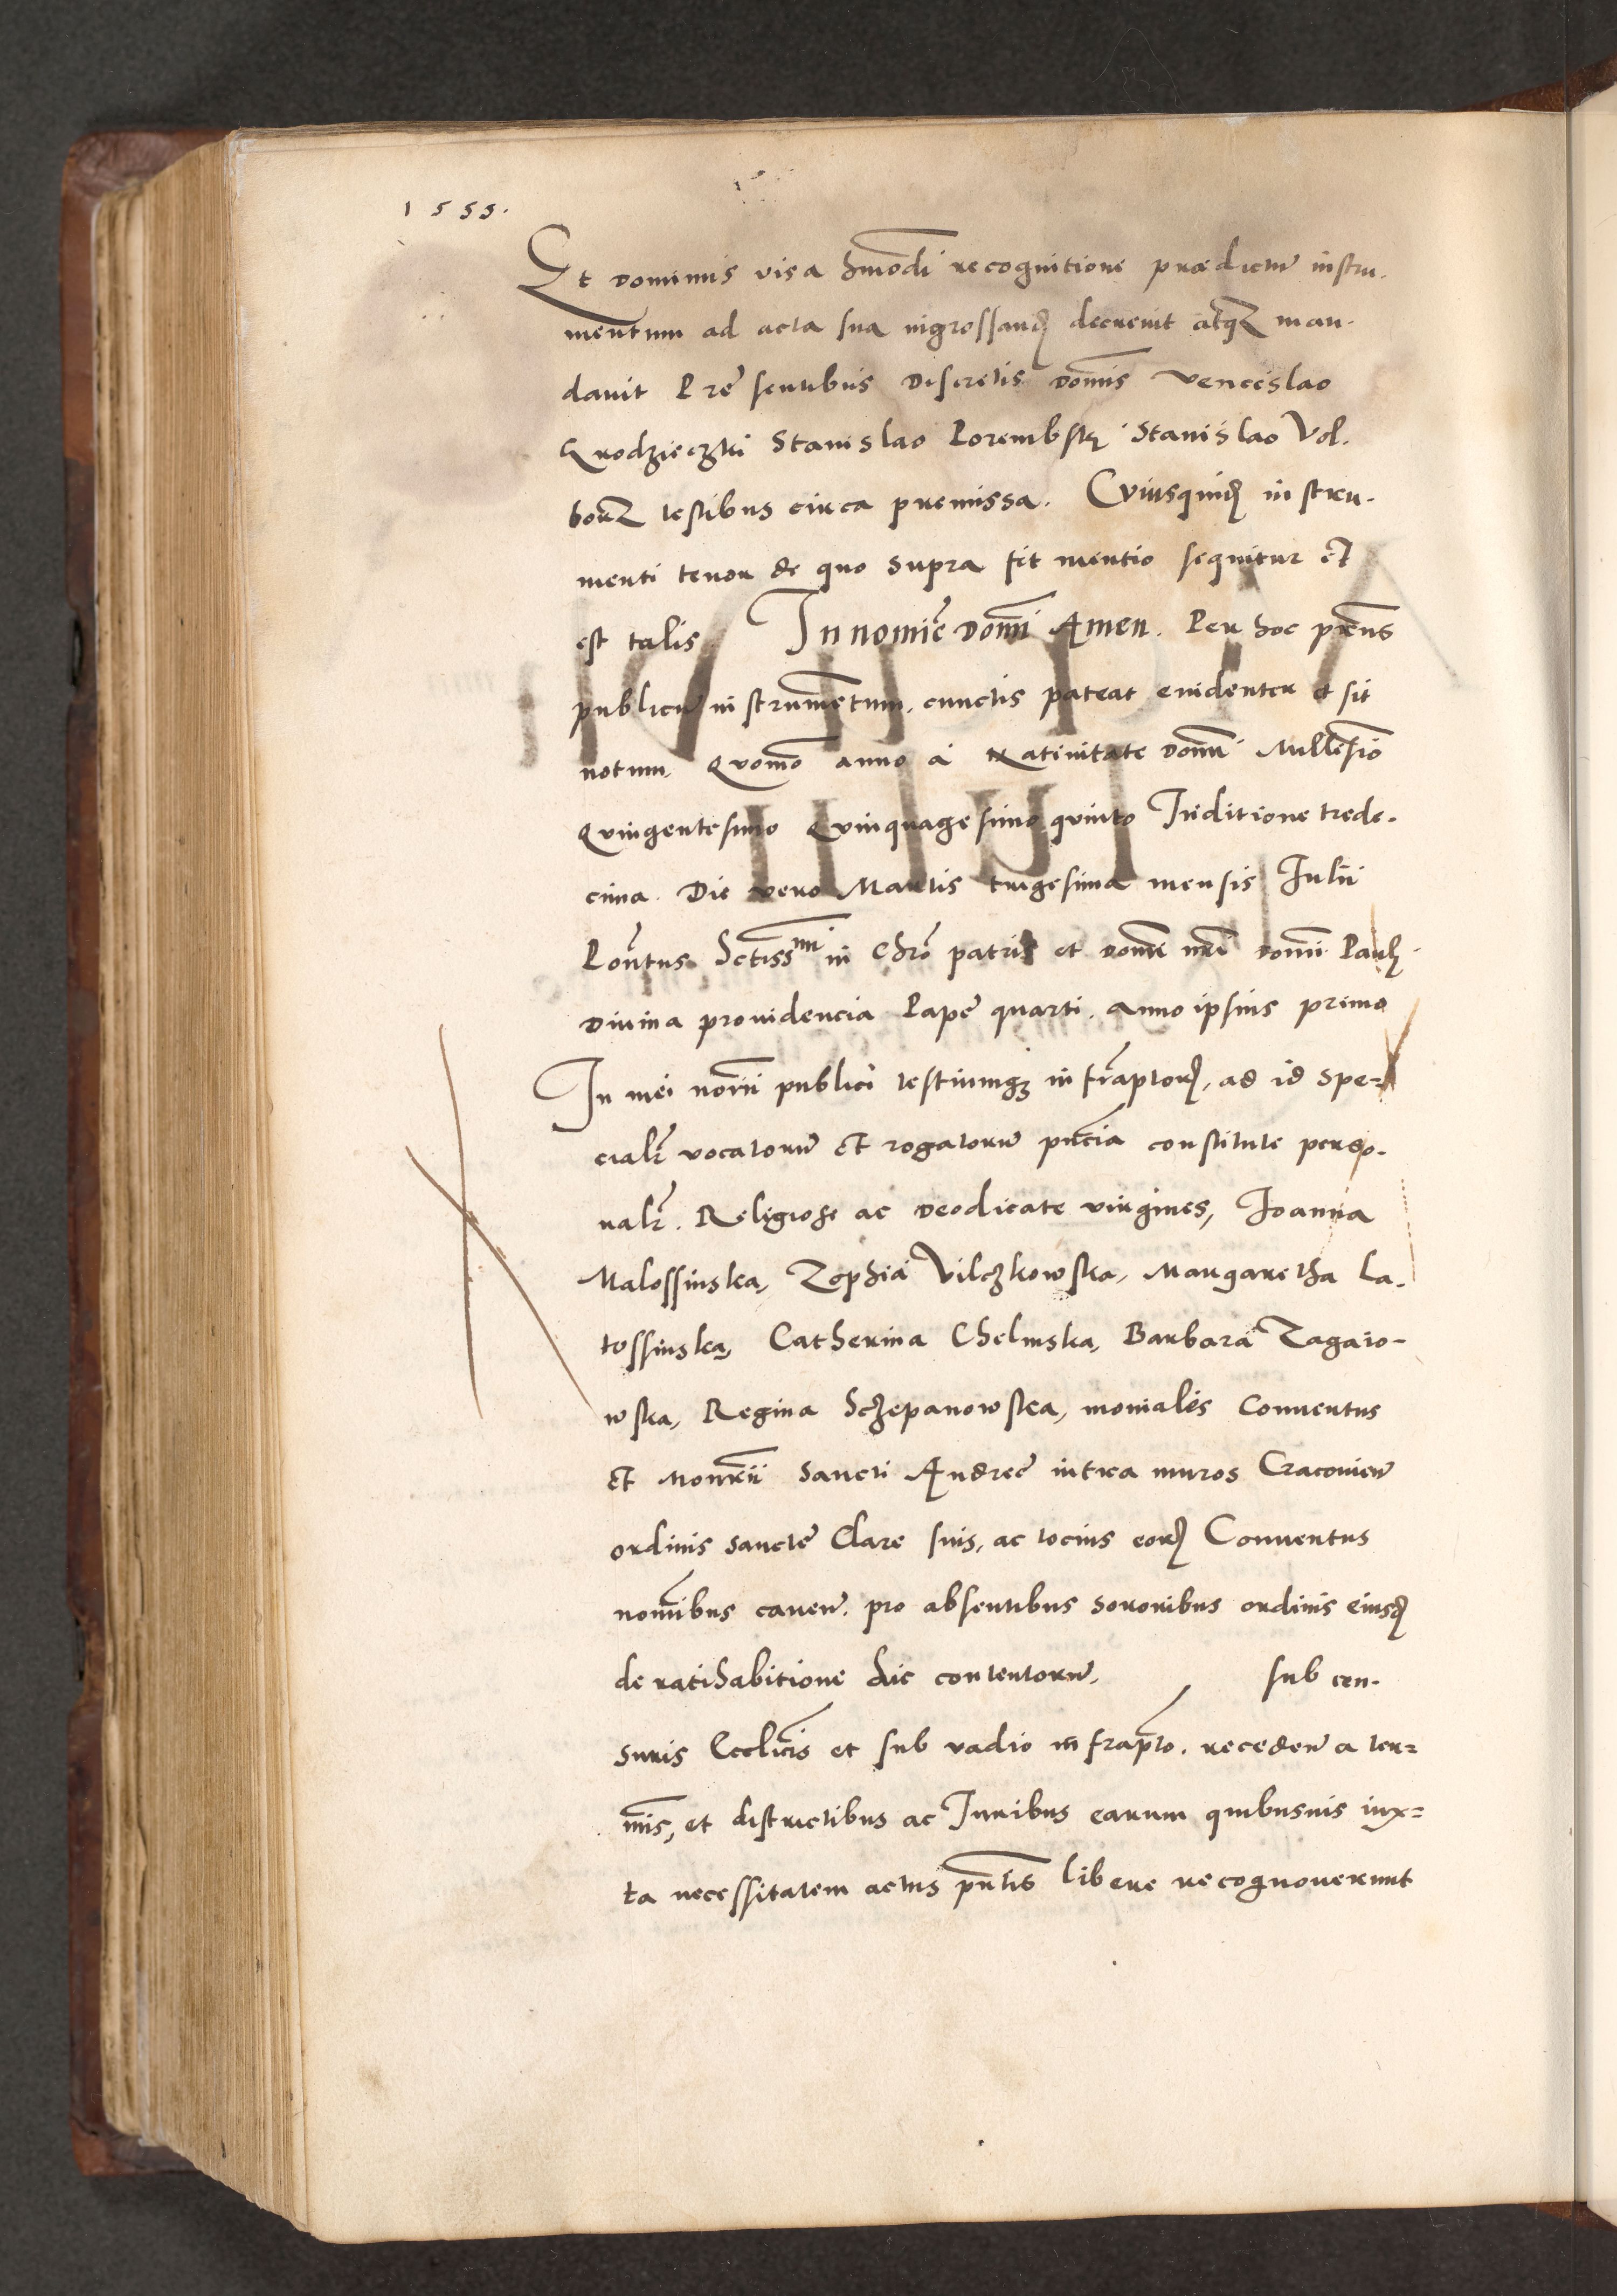 1555.
Et dominus visa hmõdi recognitione prædictũ instru-
mentum ad acta sua ingrossand decrevit atqʒ man-
davit Presentibus Discretis Domĩs Venceslao
Grodzieczki Stanislao Porembski Stanislao Vol-
borz testibus circa premissa. Cviusquid instru-
menti tenor de quo supra fit mentio sequitur et
est talis In nomĩe Domĩ Amen. Per hoc prñs
publicũ instrumẽtum cunctis pateat evidenter et sit
notum Qvomõ anno a Natiuitate Domĩ Millesĩo
Qvingentesimo Qvinquagesimo qvinto Inditione trede-
cima. Die vero Martis trigesima mensis Iulii
Pontus Sctissmi in Chrõ patris et Domĩ nrĩ Domĩ Pauli
Divina providencia Pape quarti. Anno ipsius primo
In mei norii publici testiumqʒ infraptor, ad id spe-
cialr vocatorũ et rogatorũ pñcia constitute perso-
nalr. Religiose ac Deodicate virgines, Joanna
Malossinska, Zophia Vilczkowska, Margaretha La-
tossinska, Catherina Chelmska, Barbara Zagaio-
wska, Regina Sczepanowska, moniales Conuentus
et Monrii Sancti Andree intra muros Cracouien
ordinis Sancte Clare suis, ac tocius eor Conuentus
nomĩbus caven. pro absentibus sororibus ordinis eiusd
de ratihabitione hic contentorũ, sub cen-
suris Ecclicis et sub vadio infrapto. receden a ter-
mis, et districtibus ac Iuribus earum quibusuis iux-
ta necessitatem actus pñtis libere recognouerunt